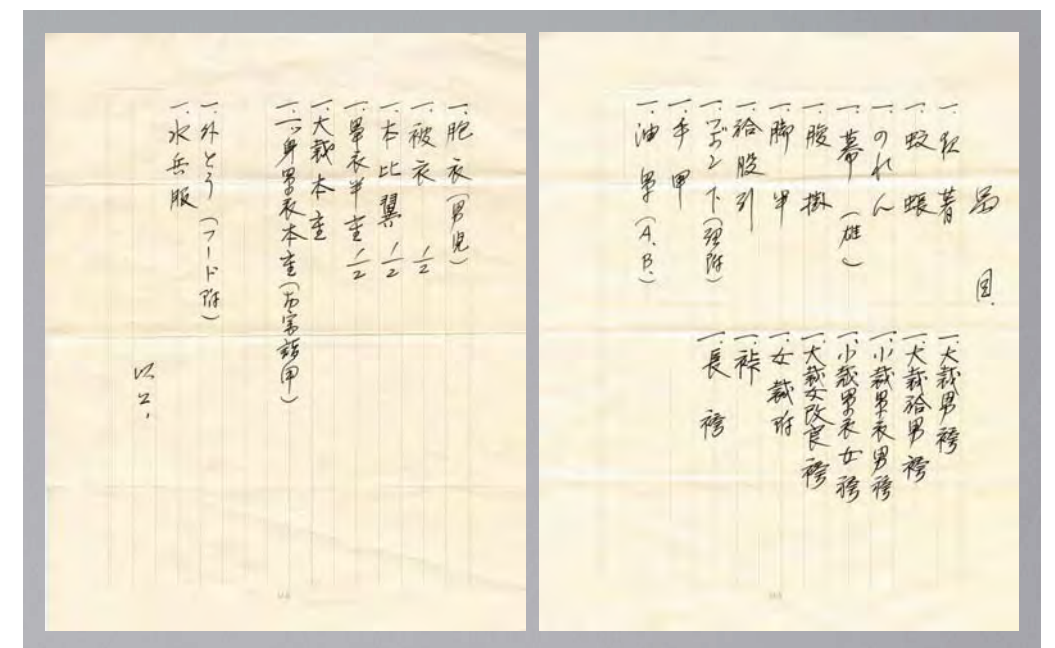 品目.
一.夜著
一.蚊帳
一.のれん
一.幕(雄)
一.腹掛
一.脚半
一.袷股引
一.ズボン下(型附)
一.手甲
一.油単(A.B.)
一.大裁男袴
一.大裁袷男袴
一.小裁単衣男袴
一.小裁単衣女袴
一.大裁女改良袴
一.女裁附
一.裃
一.長袴
一.胞衣(男児)
一.被衣 1/2
一.本比翼 1/2
一.単衣半重 1/2
一.大裁本重
一.一ッ身単衣本重(お宮詣用)
一.外とう(フード附)
一.水兵服
以上.